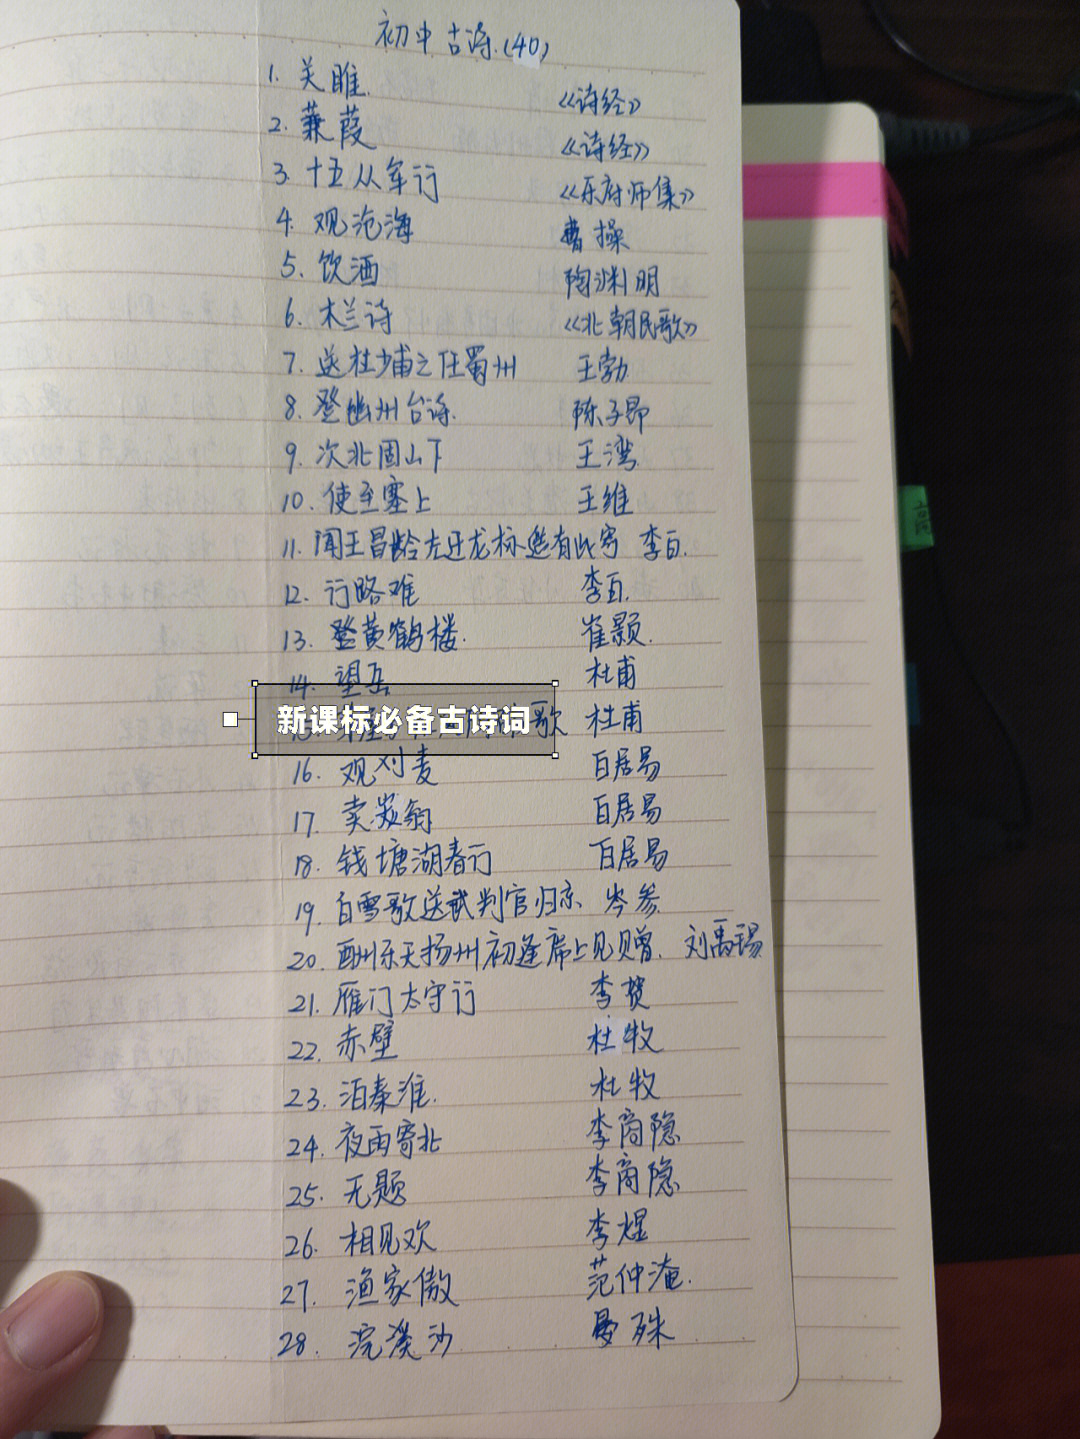 初中古诗.(40)
1. 关雎. 《诗经》
2. 蒹葭 《诗经》
3. 十五从军行 《乐府师集》
4. 观沧海 曹操
5. 饮酒 陶渊明
6. 木兰诗 《北朝民歌》
7. 送杜少甫之任蜀州 王勃
8. 登幽州台诗. 陈子昂
9. 次北固山下 王湾
10. 使至塞上 王维
11. 闻王昌龄左迁龙标遥有此寄 李白.
12. 行路难 李白.
13. 登黄鹤楼. 崔颢.
14. 望岳 杜甫
新课标必备古诗词
15. 歌 杜甫
16. 观刈麦 白居易
17. 卖炭翁 白居易
18. 钱塘湖春行 白居易
19. 白雪歌送武判官归京 岑参
20. 酬乐天扬州初逢席上见赠. 刘禹锡
21. 雁门太守行 李贺
22. 赤壁 杜牧
23. 泊秦淮. 杜牧
24. 夜雨寄北 李商隐
25. 无题 李商隐
26. 相见欢 李煜
27. 渔家傲 范仲淹.
28. 浣溪沙 晏殊
高